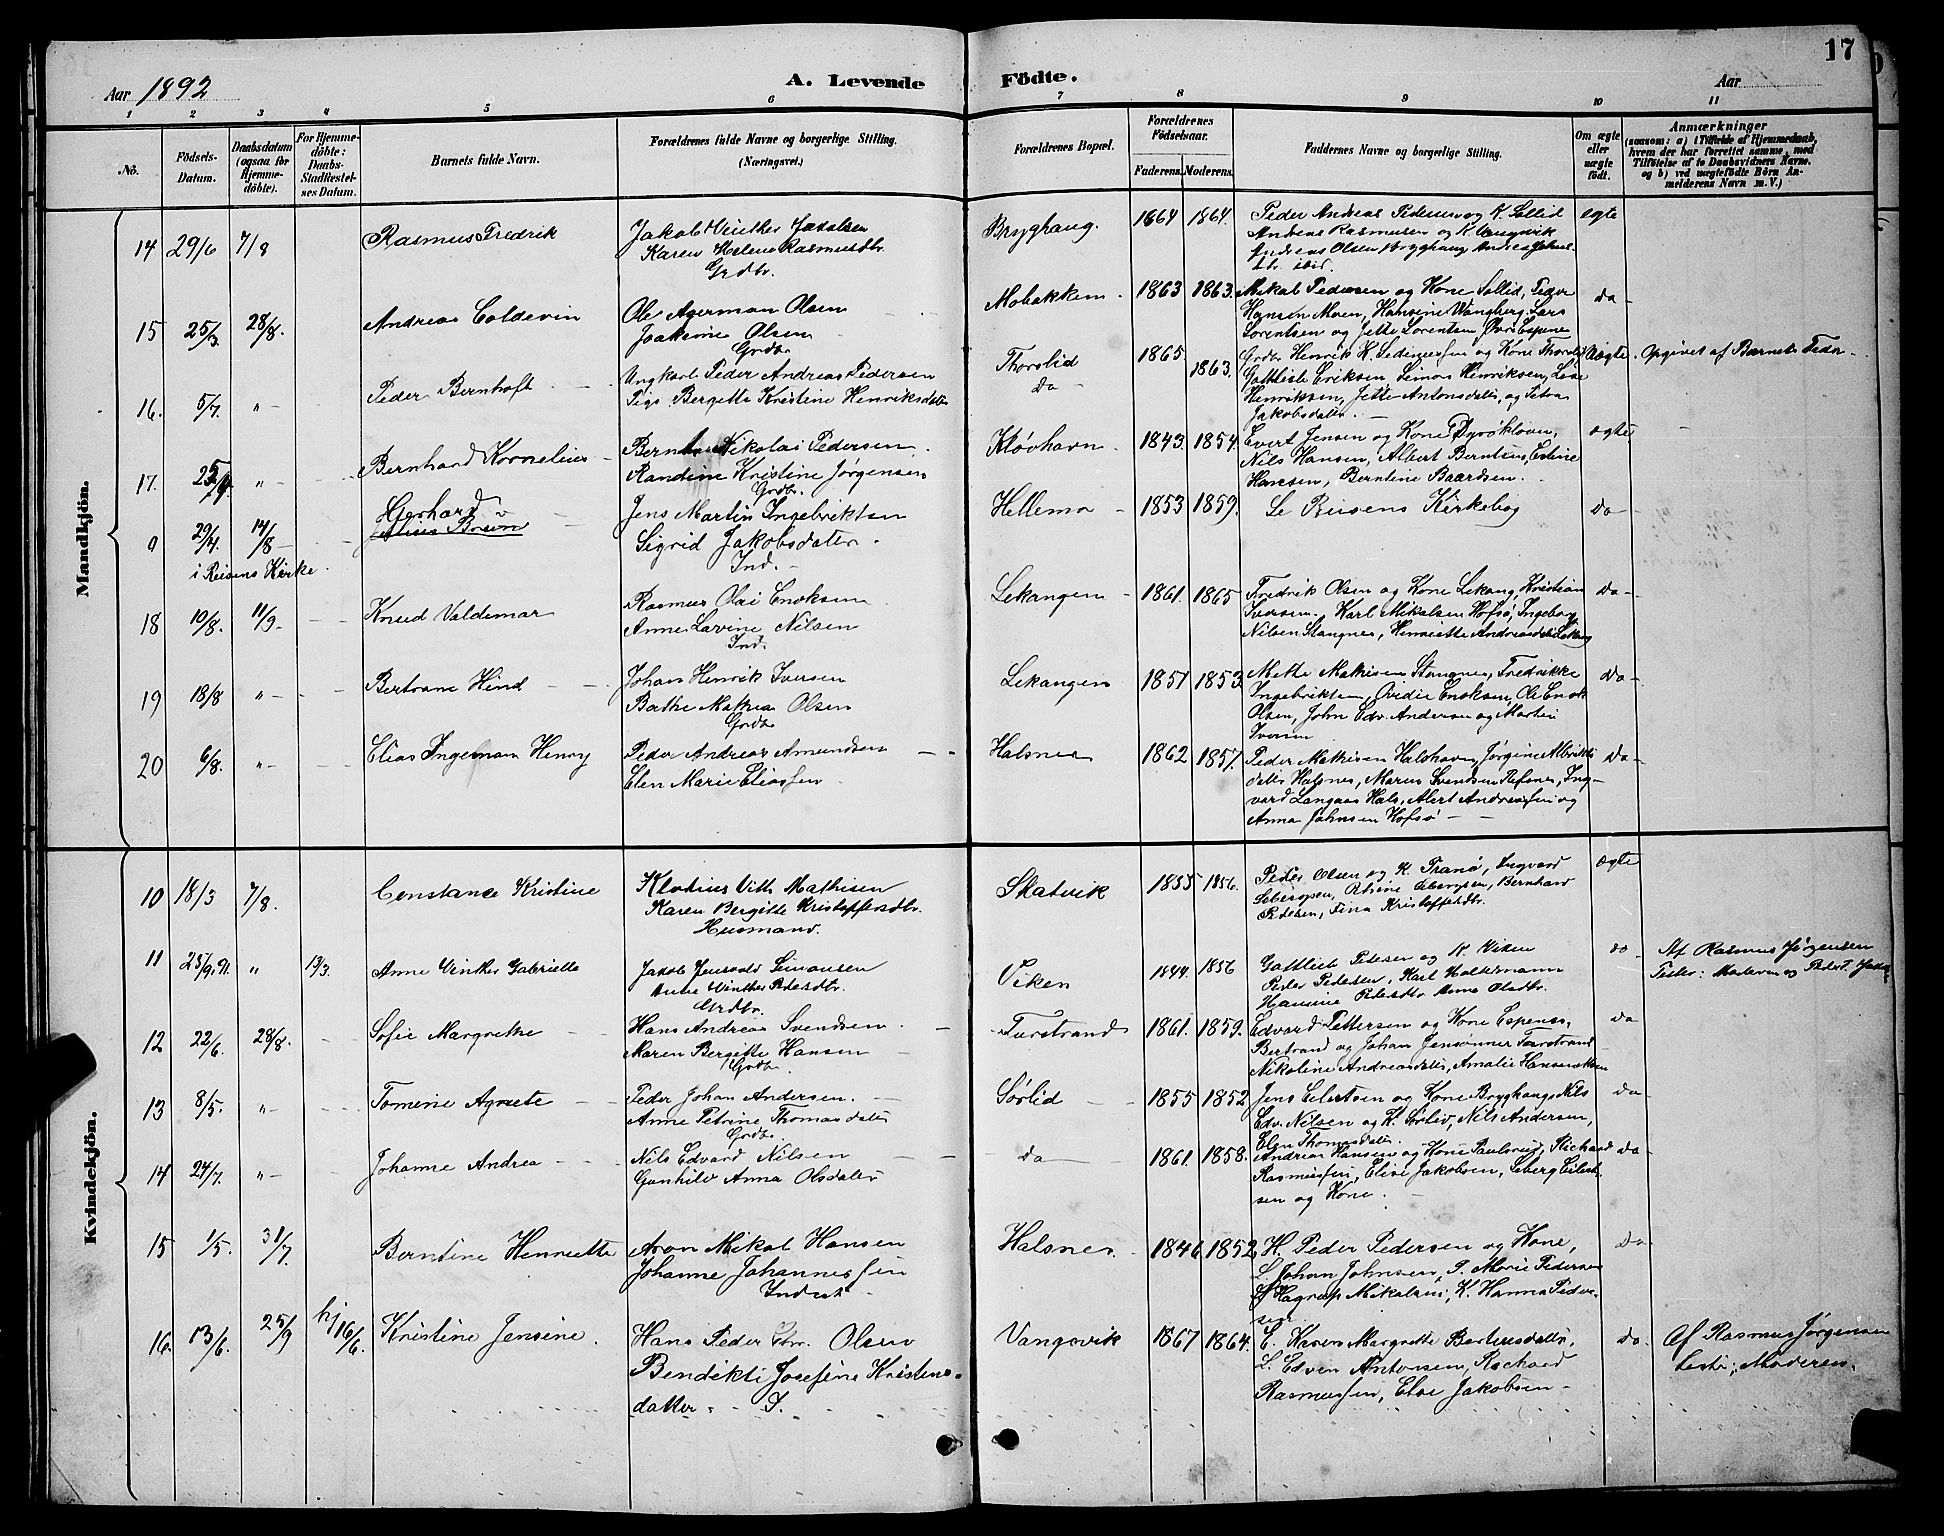 17
Aar 1892
A. Levende
Födte.
Aar
1 2 3 4 5 6 7 8 9 10 11
No.
Födsels-Datum.
Daabsdatum (ogsaa for Hjemmedöbte).
For Hjemmedöbte: Daabs-Stadfæstelses Datum.
Barnets fulde Navn.
Forældrenes fulde Navne og borgerlige Stilling.
(Næringsvei.)
Forældrenes Bopæl.
Forældrenes Födselsaar.
Faderens. Moderens.
Faddernes Navne og borgerlige Stilling.
Om ægte eller uægte födt.
Anmærkninger
(saasom: a) i Tilfælde af Hjemmedaab, hvem der har forrettet samme, med Tilföielse af to Daabsvidners Navne, og b) ved uægtefödte Börn Anmelderens Navn m. V.)
Mandkjön.
14 29/6 7/8 Rasmus Fredrik Jakob Winther Jakobsen
Karen Helene Rasmusdtr.
Grdbr.
Brygghaug. 1864 1864. Peder Andreas Pedersen og K. Sollid
Andreas Rasmussen og K. Vangsvik
Andreas Olsen Brygghaug
ibid.
ægte
15 25/3. 28/8. Andreas Coldevin Ole Agerman Olsen
Joakime Olsen
Grdbr
Mobakken 1863 1863. Mikal Pedersen og Kone Sollid, Peder
Hansen Moen, Hansine Wangberg, Lars
Lorentsen og Jette Lorentsen, Øvre Espenes
do
16. 5/7. " Peder Bernhoft Ungkarl Peder Andreas Pedersen
Pige Bergitte Kristine Henriksdatter
Thorslid
do
1865. 1863. Grdbr. Henrik K. Pedersen og Kone Thorslid
Gottlieb Eriksen, Simon Henriksen, Lise
Henriksen, Jette Antonsdatter, og Petra
Jakobsdatter.
Uægte. Opgivet af Barnets Fader
17. 25/7. " Bernhard Kornelius Nikolai Pedersen
Randine Kristine Jørgensen
Grdbr.
Kløvhavn 1843. 1854. Evert Jensen og Kone Dyrøkloven,
Nils Hansen, Albert Berntsen, Edine
Hansen, Berntine Baardsen.
ægte
9 29/4. 14/8 Gerhard
i Reisens Kirke.
Jens Martin Ingebriktsen
Sigrid Jakobsdatter.
Ind.
Hellemo 1853 1859. Se Reisens Kirkebog do
18 10/8. 11/9 Knud Valdemar Rasmus Olai Enoksen
Anne Lavine Nilsen
Ind.
Lekangen 1861. 1865 Fredrik Olsen og Kone Lekang, Kristian
Iversen, Karl Mikalsen Hofsø, Ingeborg
Nilsen Stangnes, Henriette Andreasdatter Lekang
do
19 18/8 " Bertram Hind Johan Henrik Iversen
Berthe Mathea Olsen
Grdbr
Lekangen 1851 1853 Mette Mathisen Stangnes, Fredrikke
Ingebriktsen, Ovidie Enoksen, Ole Enok
Olsen, John Edv. Andersen og Martin
Iversen
do
20 6/8. " Elias Ingeman Henry Peder Andreas Amundsen
Elen Marie Eliassen
Halsnes 1862 1857. Peder Mathisen Halshavn, Jørgine Albrikts
datter Halsnes, Maren Svendsen Refsnes, Ing-
vard Langaas Hals, Albert Andreassen og
Anna Johnsen Hofsø
do
Kvindekjön.
10 18/3 7/8. Constance Kristine Klodius Vith Mathisen
Karen Bergitte Kristoffersdtr.
Husmand.
Skatvik 1855 1856. Peder Olsen og K. Tranø, Ingvard
Sebergsen, Petrine Sebergsen, Bernhard
Pedersen, Tina Kristoffersdtr.
ægte
11 25/9.91. " 13/3. Anne Winther Gabrielle Jakob Jensvold Simonsen
Anne Winther Pedersdtr.
Grdbr.
Viken 1844. 1856 Gottlieb Pedersen og K. Viken
Peder Pedersen, Karl Haltermann
Hansine Pedersdtr. Anna Olsdtr.
do Af Rasmus Jørgensen
Testes: Moderen og
12 22/6. 28/8. Sofie Margrethe Hans Andreas Svendsen.
Maren Bergitte Hansen
Grdbr.
Furstrand 1861. 1859. Edvard Pettersen og Kone Espenes,
Bertrand og Johan Jensønner Faurstrand
Nikoline Andreasdatter, Amalie Hansen
do
13 8/5. " Tomine Agnete Peder Johan Andersen.
Anne Petrine Thomasdatter
Grdbr.
Sørlid 1855 1852 Jens Eilertsen og Kone Brygghaug, Nils
Edv. Nilsen og K. Sørlid, Nils Andersen,
Elen Thomasdatter.
do
14 24/7. " Johanne Andrea Nils Edvard Nilsen
Gunhild Anna Olsdatter
do 1861. 1858. Andreas Hansen og Kone Paulsrud, Richard
Rasmussen, Elise Jakobsen, Seberg Eilert-
sen og Kone.
do
15 1/5. 31/7. Berntine Henriette Aron Mikal Hansen
Johanne Johannessen
Inderst
Halsnes 1846 1852 H. Peder Pedersen og Kone,
L. Johan Johnsen, P. Marie Pedersen
Hagrup Mikalsen, K. Hanna Peder-
sen.
do
16. 13/6. 25/9 hj 16/6. Kristine Jensine. Hans Peder Olsen
Bendikte Josefine Kristens-
datter. I.
Vangsvik 1867 1864. E. Karen Margrette Berteusdatter,
L. Edvin Antonsen, Richard
Rasmussen, Else Jakobsen
do. Af Rasmus Jørgensen
testes; Moderen.